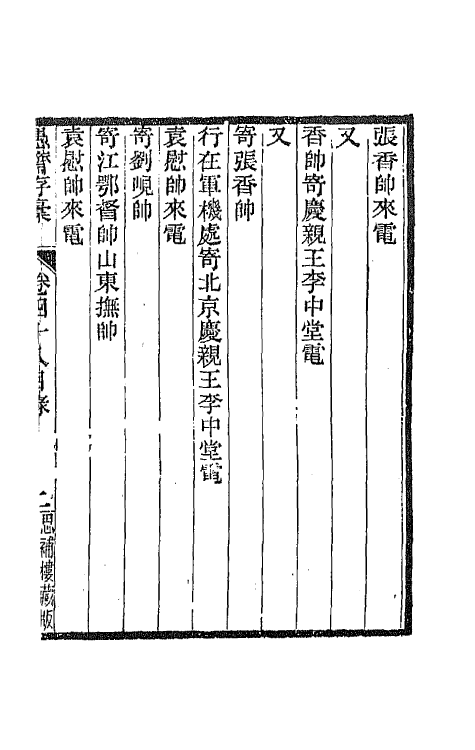 張香帥來電
又
香帥寄慶親王李中堂電
又
寄張香帥
行在軍機處寄北京慶親王李中堂電
袁慰帥來電
寄劉峴帥
寄江鄂督帥山東撫帥
袁慰帥來電
愚齋存稾 卷四十八目錄 二 思補樓藏版